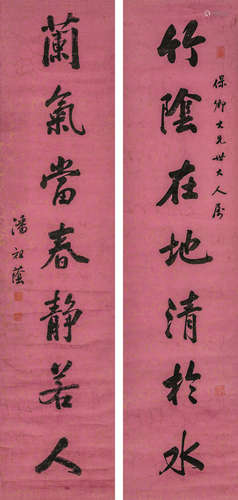 保卿大兄世大人属
竹陰在地清於水
蘭氣當春静若人
潘祖蔭